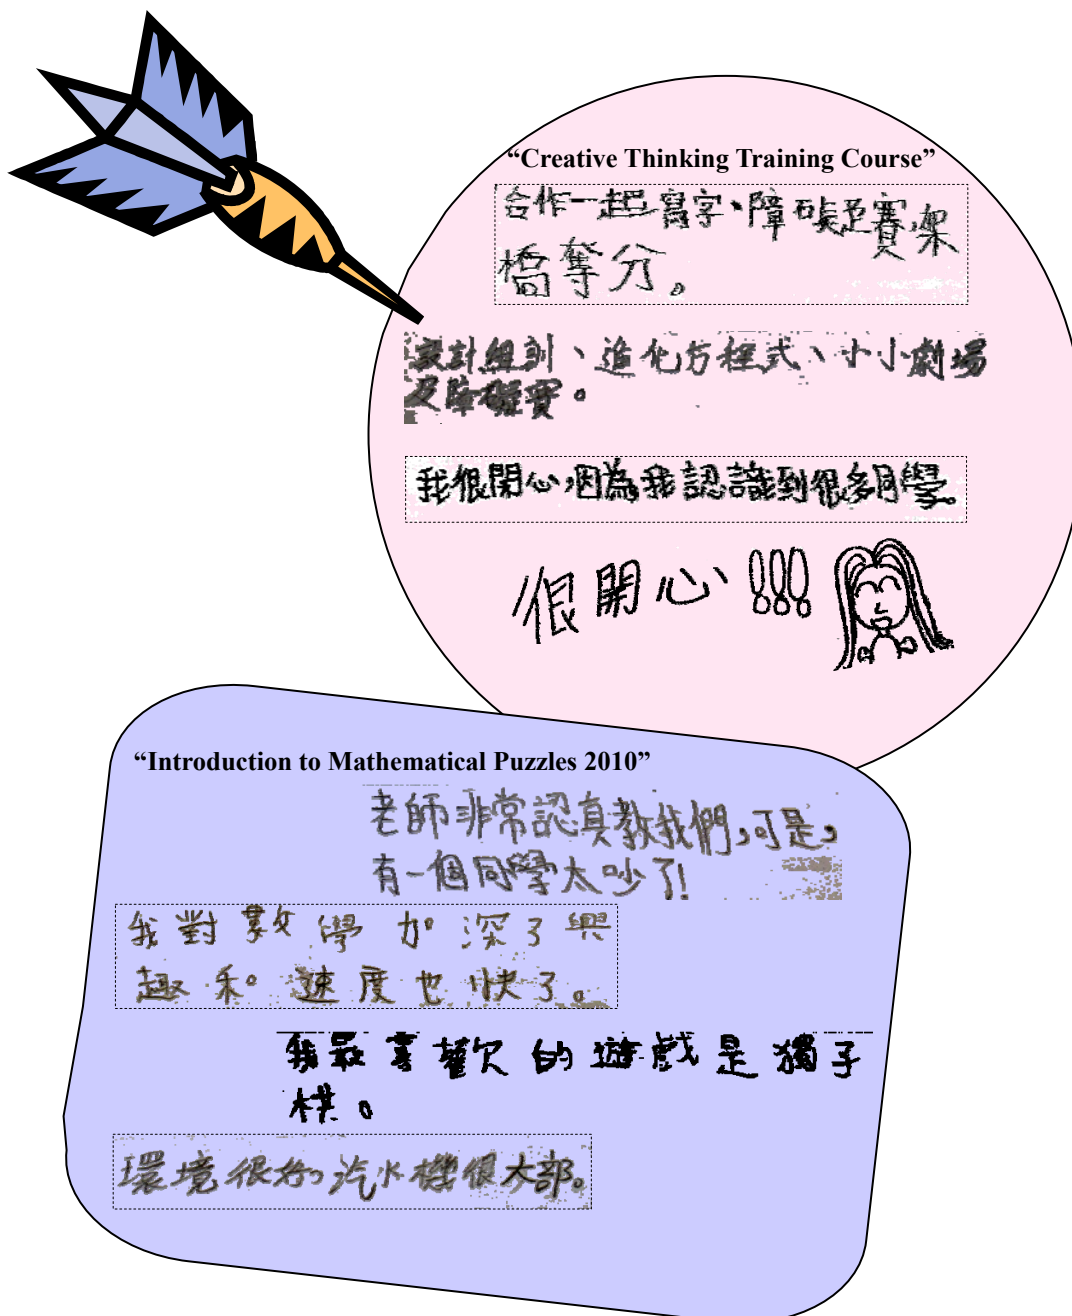 “Creative Thinking Training Course”
合作一起寫字、障礙賽、架
橋奪分。
設計組訓、進化方程式、小小劇場
及障礙賽。
我很開心,因為我認識到很多同學。
很開心!!!
“Introduction to Mathematical Puzzles 2010”
老師非常認真教我們,可是,
有一個同學太吵了!
我對數學加深了興
趣和速度也快了。
我最喜歡的遊戲是獨子
棋。
環境很好,汽水機很大部。